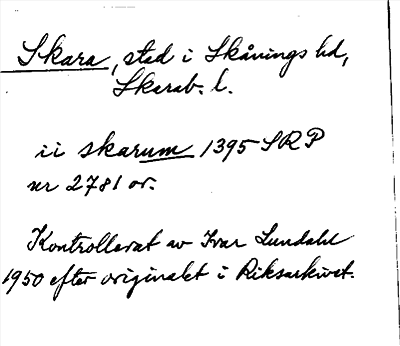 Skara, stad i Skånings hd,
Skarab. l.
ii skarum 1395 SRP
nr 2781 or.
Kontrollerat av Ivar Lundahl
1950 efter originalet i Riksarkivet.